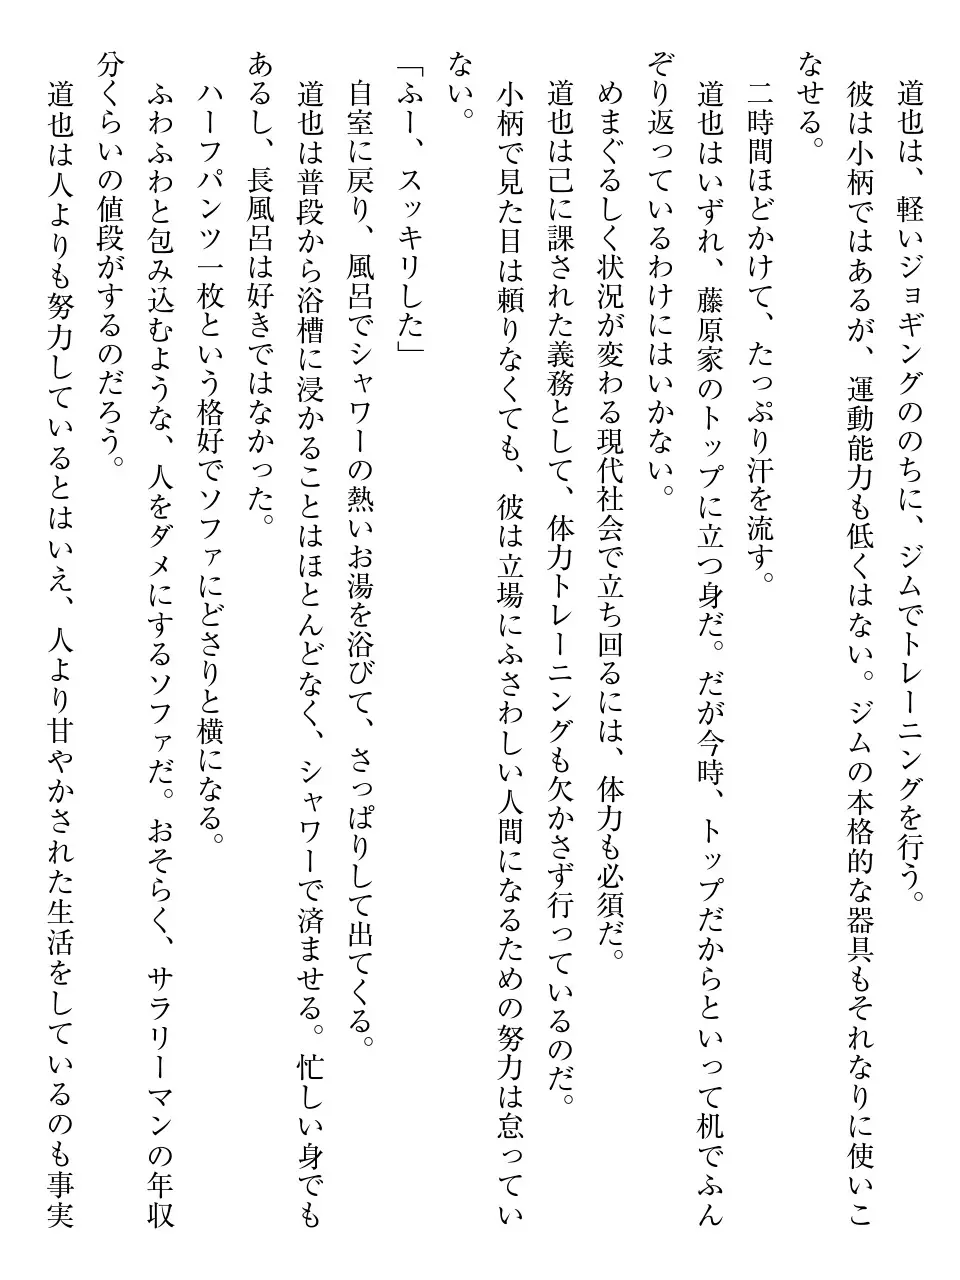 道也は、軽いジョギングののちに、ジムでトレーニングを行う。
彼は小柄ではあるが、運動能力も低くはない。ジムの本格的な器具もそれなりに使いこ
なせる。
二時間ほどかけて、たっぷり汗を流す。
道也はいずれ、藤原家のトップに立つ身だ。だが今時、トップだからといって机でふん
ぞり返っているわけにはいかない。
めまぐるしく状況が変わる現代社会で立ち回るには、体力も必須だ。
道也は己に課された義務として、体力トレーニングも欠かさず行っているのだ。
小柄で見た目は頼りなくても、彼は立場にふさわしい人間になるための努力は怠ってい
ない。
「ふー、スッキリした」
自室に戻り、風呂でシャワーの熱いお湯を浴びて、さっぱりして出てくる。
道也は普段から浴槽に浸かることはほとんどなく、シャワーで済ませる。忙しい身でも
あるし、長風呂は好きではなかった。
ハーフパンツ一枚という格好でソファにどさりと横になる。
ふわふわと包み込むような、人をダメにするソファだ。おそらく、サラリーマンの年収
分くらいの値段がするのだろう。
道也は人よりも努力しているとはいえ、人より甘やかされた生活をしているのも事実